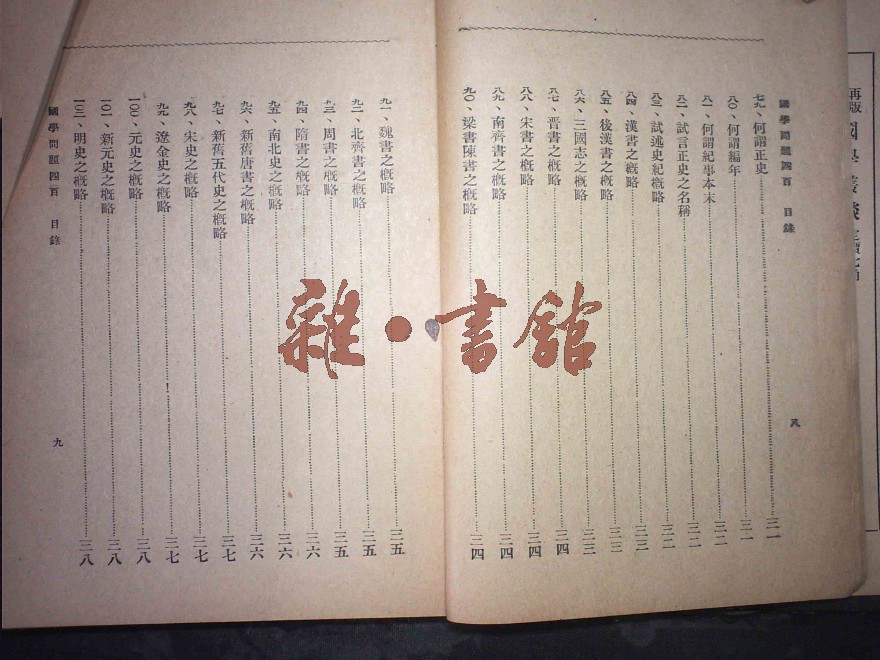 國學問題四百　目錄
七九、何謂正史……三一
八〇、何謂編年……三一
八一、何謂紀事本末……三二
八二、試言正史之名稱……三二
八三、試述史紀概略……三二
八四、漢書之概略……三二
八五、後漢書之概略……三三
八六、三國志之概略……三三
八七、晋書之概略……三四
八八、宋書之概略……三四
八九、南齊書之概略……三四
九〇、梁書陳書之概略……三四
八
九一、魏書之概略……三五
九二、北齊書之概略……三五
九三、周書之概略……三五
九四、隋書之概略……三六
九五、南北史之概略……三六
九六、新舊唐書之概略……三六
九七、新舊五代史之概略……三七
九八、宋史之概略……三七
九九、遼金史之概略……三七
一〇〇、元史之概略……三八
一〇一、新元史之概略……三八
一〇二、明史之概略……三八
國學問題四百　目錄
九
再版
雜・書館